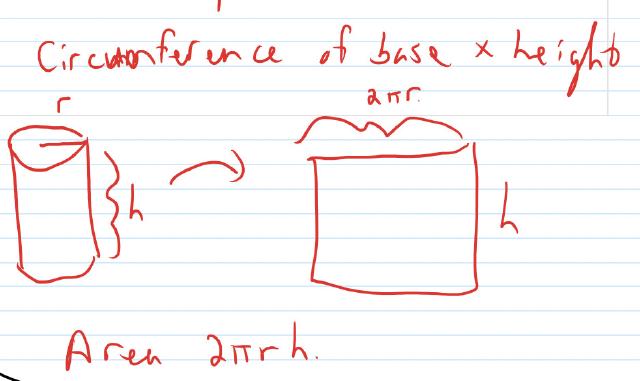 Circumference of base × height
2πr.
r
h
h
Area 2πrh.